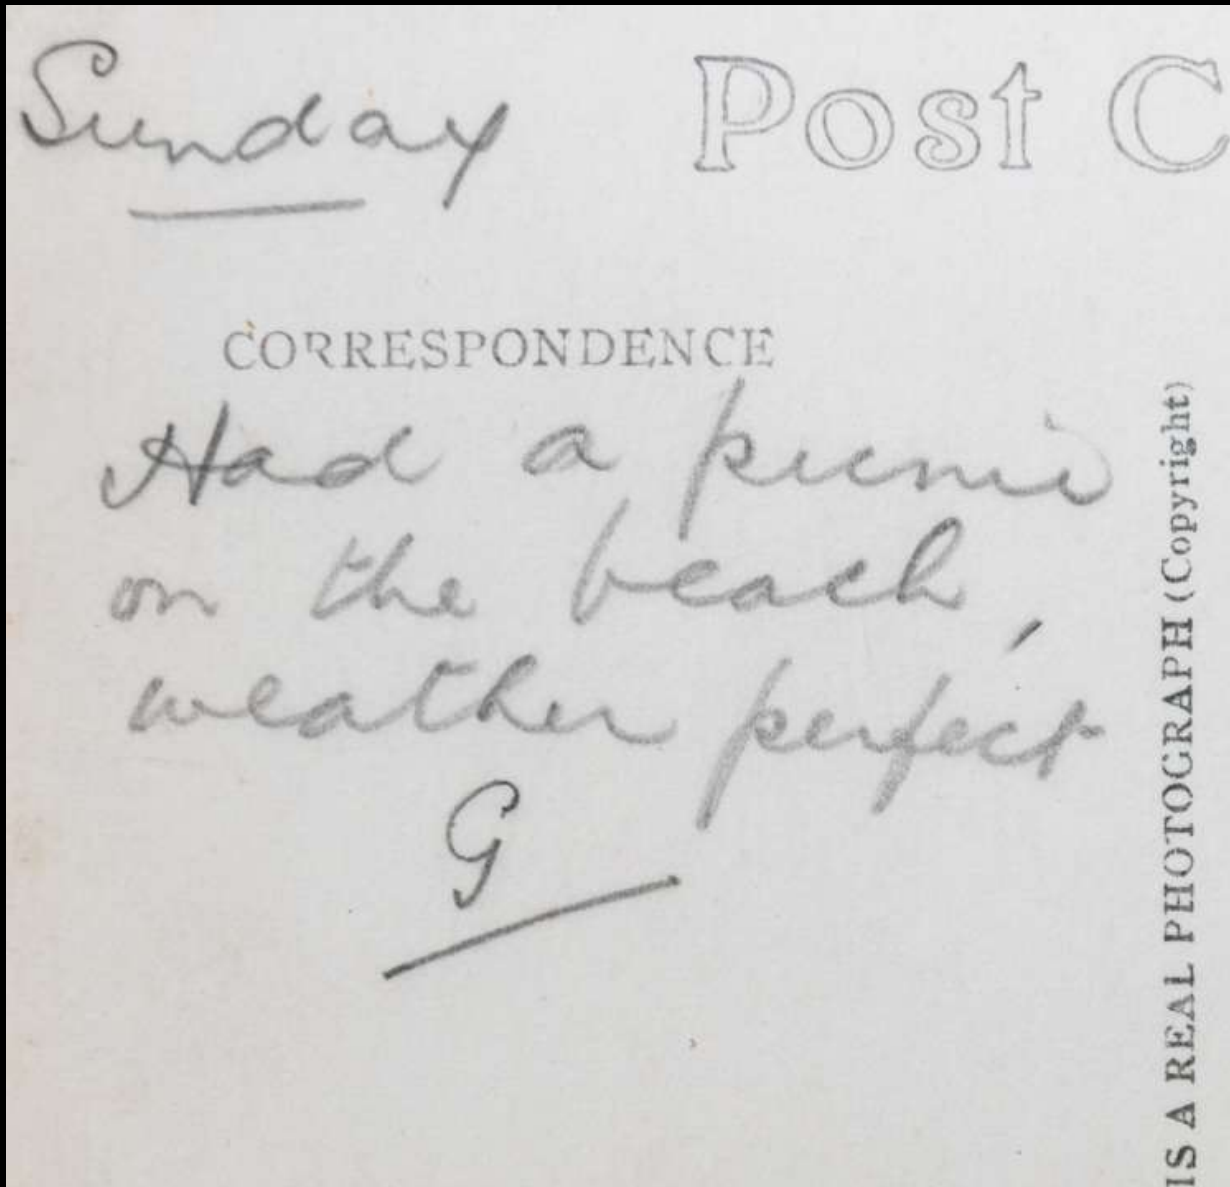 Sunday
Post C
CORRESPONDENCE
Had a picnic
on the beach,
weather perfect
G
IS A REAL PHOTOGRAPH (Copyright)